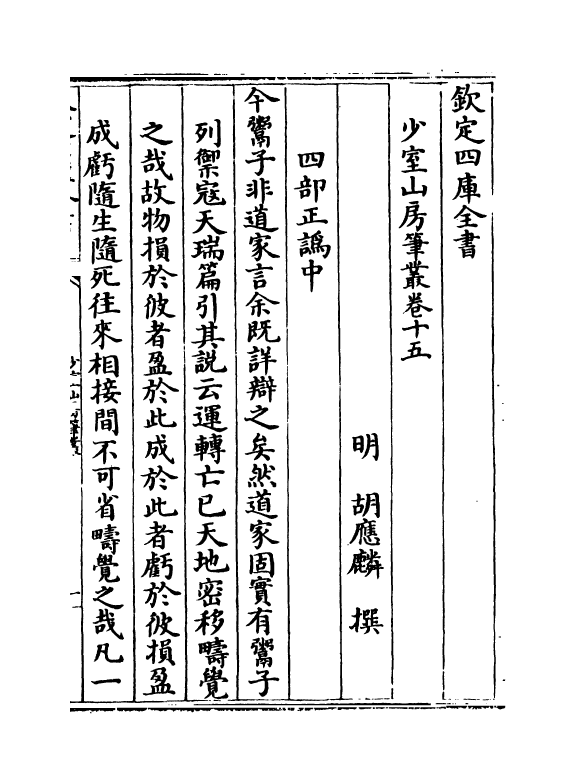 欽定四庫全書
少室山房筆叢卷十五
明 胡應麟 撰
四部正譌中
今鬻子非道家言余既詳辯之矣然道家固實有鬻子
列禦寇天瑞篇引其說云運轉亡已天地密移疇覺
之哉故物損於彼者盈於此成於此者虧於彼損盈
成虧隨生隨死往來相接間不可省疇覺之哉凡一